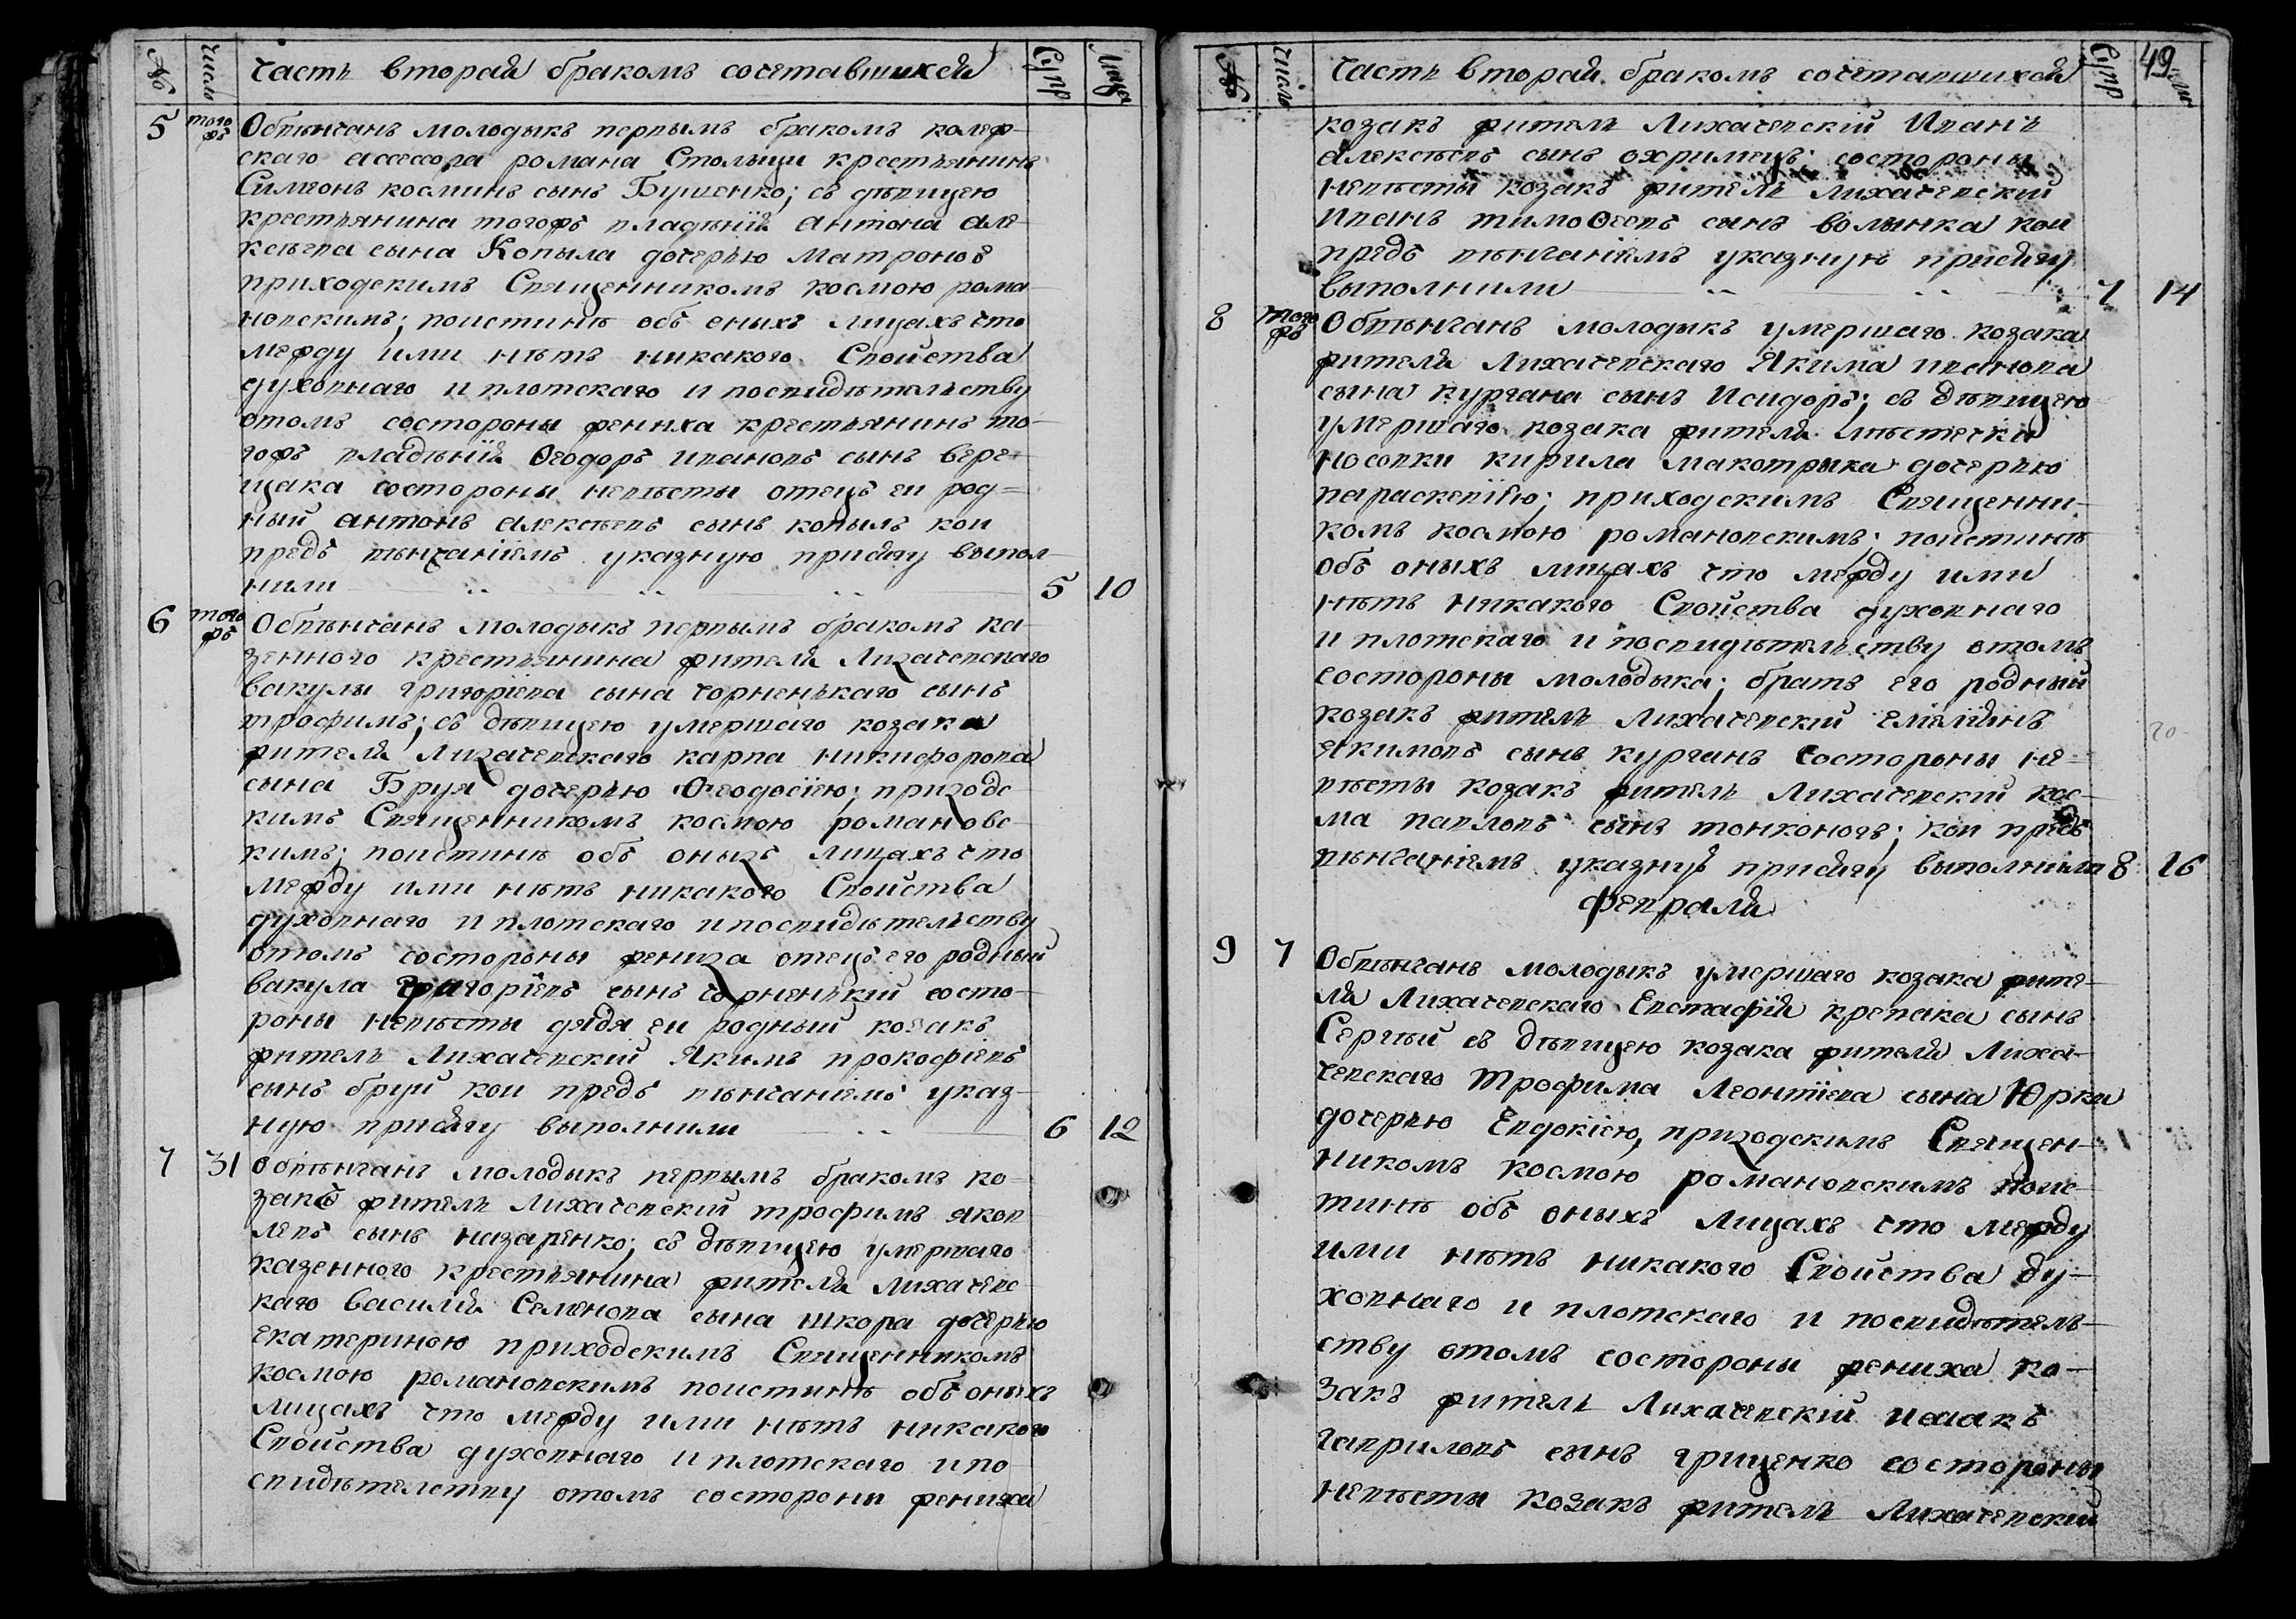 № Число Часть вторая бракомъ сочетавшихся Супр Лица
5 тогожъ Обвѣнчанъ молодыкъ первымъ бракомъ колеж-
скаго ассесора романа Столици крестьянинъ
Симеонъ косминъ сынъ Бушенко; съ дѣвицею
крестьянина тогожъ владѣнїя антона але-
ксѣева сына Копыла дочерью Матроною
приходскимъ Священникомъ космою рома-
новскимъ; поистиннѣ объ оныхъ лицахъ что
между ими нѣтъ никакого Свойства
духовнаго и плотскаго и посвидѣтельству
отомъ состороны жениха крестьянинъ то-
гожъ владѣнїя Ѳеодоръ ивановъ сынъ вере-
щака состороны невѣсты отецъ еи род=
ный антонъ алексѣевъ сынъ копылъ кои
предъ вѣнчанїемъ указную присягу выпол
нили 5 10
6 тогожъ Обвѣнчанъ молодыкъ первымъ бракомъ ка-
зенного крестьянина жителя Лихачевскаго
вакулы григорїева сына чорненькаго сынъ
трофимъ; съ дѣвицею умершаго козака
жителя Лихачевскаго карпа никифорова
сына Бруя дочерью Ѳеодосїею; приходс-
кимъ Священникомъ космою романовс-
кимъ; поистиннѣ объ оныхъ лицахъ что
между ими нѣтъ никакого Свойства
духовнаго и плотскаго и посвидѣтельству
отомъ состороны жениха отецъ его родный
вакула григорїевъ сынъ чорненькїй состо-
роны невѣсты дядя еи родный козакъ
житель Лихачевскїй Якимъ прокофїевъ
сынъ бруй кои предъ вѣнчанїемъ указ-
ную присягу выполнили 6 12
7 31 Обвѣнчанъ молодыкъ первымъ бракомъ ко-
закъ житель Лихачевскїй трофимъ яков
левъ сынъ назаренко; съ дѣвицею умершаго
казенного крестьянина жителя лихачевс-
каго василия Семенова сына шкора дочерью
екатериною приходскимъ Священникомъ
космою романовскимъ поистиннѣ объ оныхъ
лицахъ что между ими нѣтъ никакого
Свойства духовнаго и плотскаго и по
свидѣтелству отомъ состороны жениха
№ Число Часть вторая бракомъ сочетавшихся Супр 49
козакъ житель Лихачевскїй Иванъ
алексѣевъ сынъ охримецъ; состороны
невѣсты козакъ житель лихачевскїй
иванъ тимоѲеевъ сынъ волынка кои
предъ вѣнчанїемъ указную присягу
выполнили 7 14
8 тогожъ Обвѣнчанъ молодыкъ умершаго козака
жителя Лихачевскаго Якима иванова
сына кургана сынъ Исидоръ; съ дѣвицею
умершаго козака жителя мѣстечка
носовки кирила макотрыка дочерью
параскевїею; приходскимъ Священни-
комъ космою романовскимъ; поистиннѣ
объ оныхъ лицахъ что между ими
нѣтъ никакого Свойства духовнаго
и плотскаго и посвидѣтельству отомъ
состороны молодыка; братъ его родный
козакъ житель лихачевскїй емелїянъ
якимовъ сынъ курганъ состороны не-
вѣсты козакъ житель Лихачевскїй кос-
ма павловъ сынъ тонконогъ; кои предъ
вѣнчанїемъ указную присягу выполнили 8 16
февраля
9 7 Обвѣнчанъ молодыкъ умершаго козака жите-
ля Лихачевскаго Евстафїя крепака сынъ
Сергїй съ дѣвицею козака жителя Лиха-
чевскаго Трофима Леонтїева сына Юрка
дочерью Евдокїею, приходскимъ Священ-
никомъ космою романовскимъ поис-
тиннѣ объ оныхъ лицахъ что между
ими нѣтъ никакого Свойства ду-
ховнаго и плотскаго и посвидѣтель-
ству отомъ состороны жениха ко-
закъ житель Лихачевскїй исаакъ
гавриловъ сынъ гриценко состороны
невѣсты козакъ житель Лихачевскїй